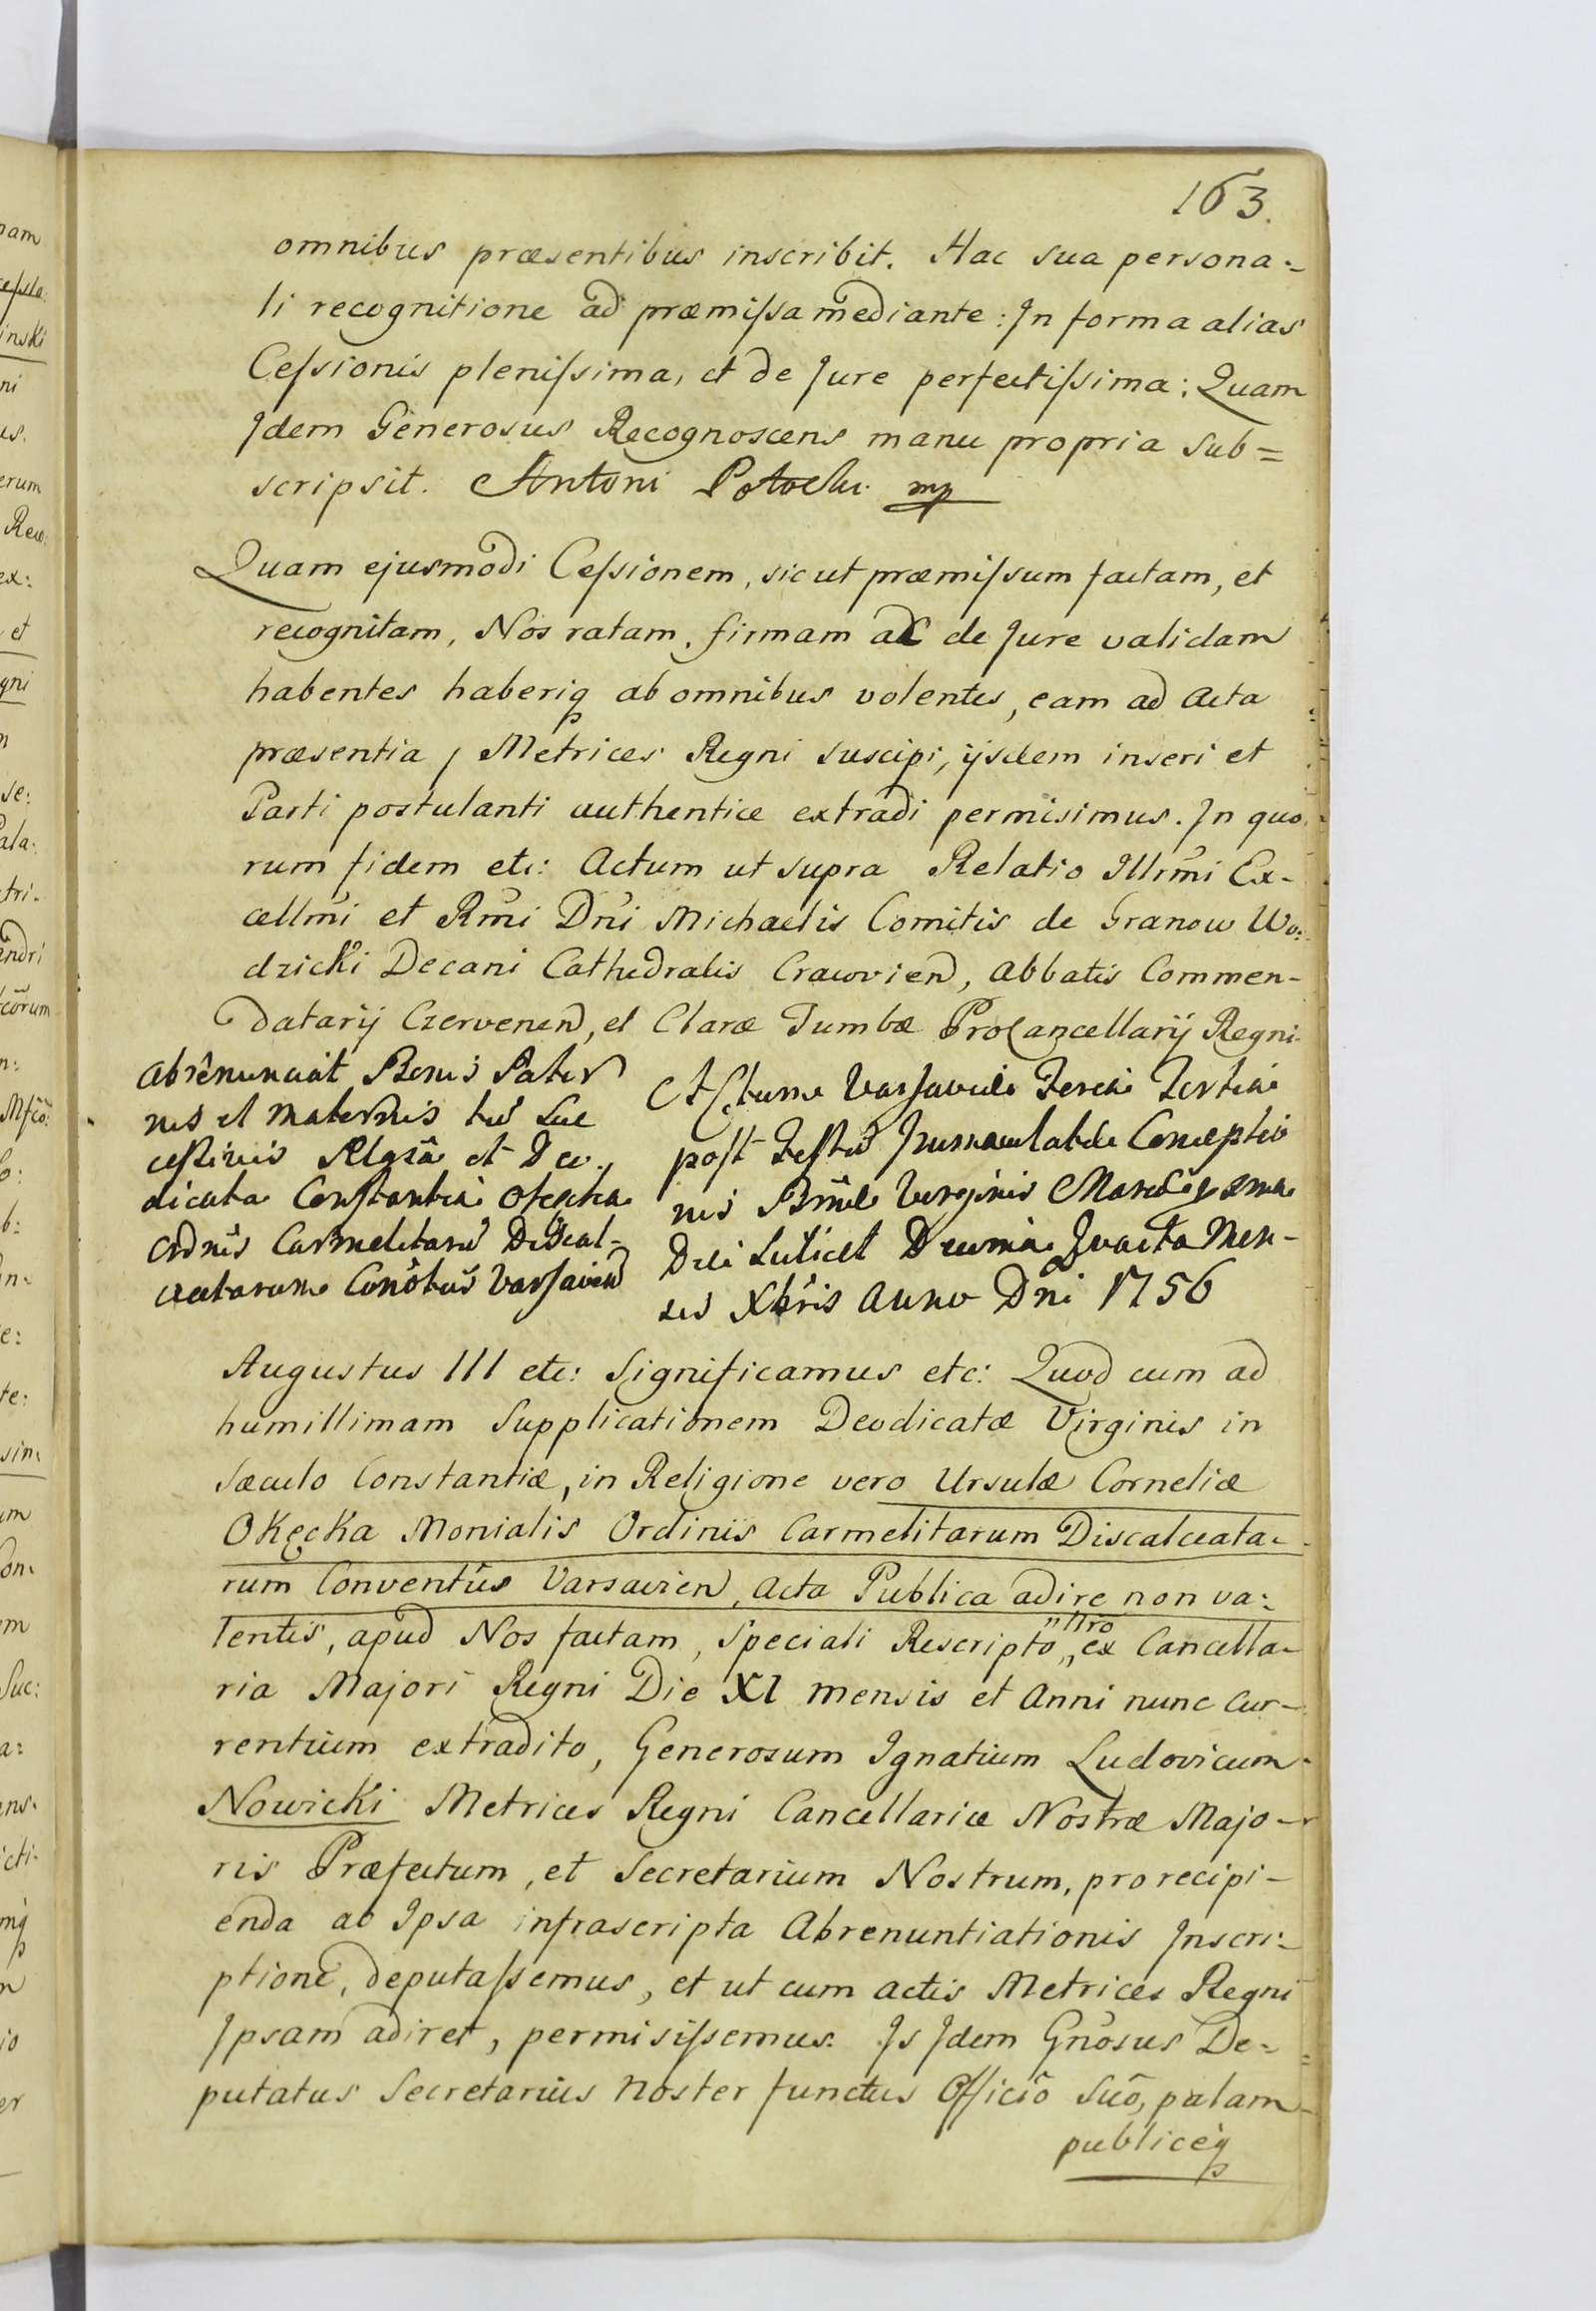 163.
omnibus præsentibus inscribit. Hac sua persona=
li recognitione ad præmissa mediante: In forma alias
Cessionis plenissima, et de Jure perfectissima: Quam
Idem Generosus Recognoscens manu propria sub=
scripsit. Antoni Potocki mp
Quam ejusmodi Cessionem, sicut præmissum factam, et
recognitam, Nos ratam, firmam ac de Jure validam
habentes haberiq ab omnibus volentes, eam ad Acta
præsentia, Metrices Regni suscipi, ijsdem inseri et
Parti postulanti authentice extradi permisimus. In quo
rum fidem etc: Actum ut supra Relatio Illrm̄i Ex-
cellm̄i et Rm̄i Dn̄i Michaelis Comitis de Granow Wo=
dzicki Decani Cathedralis Cracovien, Abbatis Commen-
datarij Czervenen, et Claræ Tumbæ ProCancellarij Regni
Abrenunciat Bonis Pater
nis et maternis tū Suc
cessivis Relgiā et Deo
dicata Constantia Okęcka
Ordnis Carmelitarū Discal-
ceatarum Conōtus Varsavien
Actum Varsaviæ Feria Tertia
post Festū Immaculatæ Conceptio
nis Bm̄æ Virginis Mariæ
Die Scilicet Decima Quarta Men-
sis Xbris Anno Dni 1756
Augustus III etc: Significamus etc: Quod cum ad
humillimam Supplicationem Deodicatæ Virginis in
Sæculo Constantiæ, in Religione vero Ursulæ Corneliæ
Okęcka Monialis Ordinis Carmelitarum Discalceata=
rum Conventûs Varsavien, Acta Publica adire non va=
lentis, apud Nos factam, Speciali Rescripto „nrō„ ex Cancella-
ria Majori Regni Die XI mensis et Anni nunc cur-
rentium extradito, Generosum Ignatium Ludovicum
Nowicki Metrices Regni Cancellariæ Nostræ Majo-
ris Præfectum, et Secretarium Nostrum, pro recipi-
enda ab Ipsa infrascripta Abrenuntiationis Inscri=
ptione, deputassemus, et ut cum actis Metrices Regni
Ipsam adiret, permisissemus. Is Idem Gn̄osus De=
putatus Secretarius Noster functus Officiô Suô, palam
publiceq